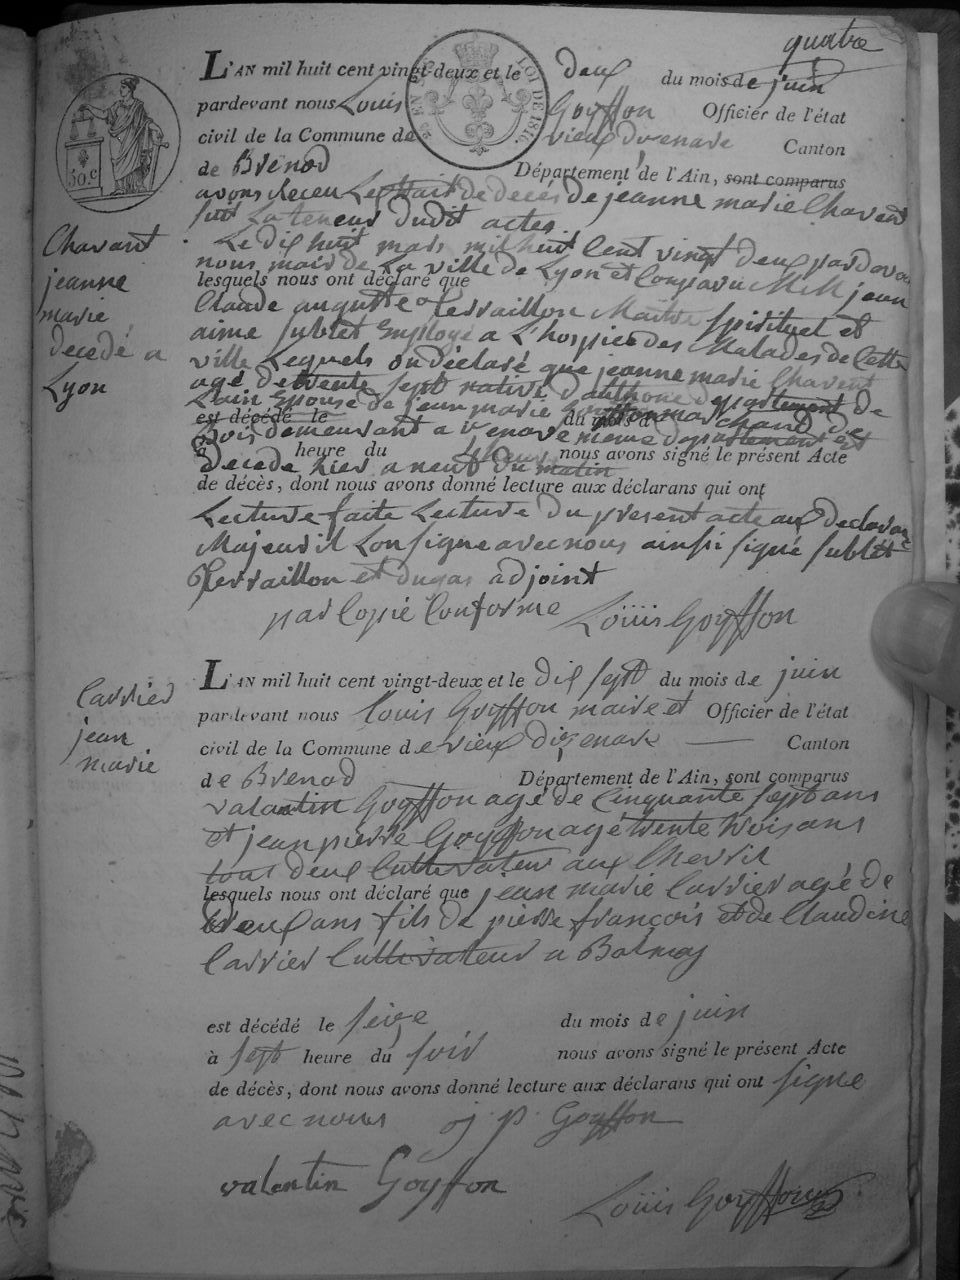 quatre
L'AN mil huit cent vingt-deux et le deux du mois de juin
pardevant nous Louis Goyffon Officier de l'état
civil de la Commune de vieux d'izenave Canton
de Brenod Département de l'Ain, sont comparus
avons Receu Lextrait de decés de jeanne marie Chavent
suit La teneur dudit actes.
Le dix huit mars mil huit Cent vingt deux pardevan
nous maire de La ville de Lyon et Comparu MM jean
lesquels nous ont déclaré que
Claude auguste Terraillon Maitre spirituel et
aime sublet Employé a L'hospice des Malades de Cette
ville Lequels on déclaré que jeanne marie Chavent
agé de trente sept native d'authone departement de
Lain Epouse de jean marie marchand de
est décédé le du mois d
Bois demeurant a venave meme departement est
à heure du nous avons signé le présent Acte
decede hier a neuf du matin
de décès, dont nous avons donné lecture aux déclarans qui ont
Lecture faite Lecture du present acte aux declaran
Majeur il Lon signe avec nous ainsi signé sublet
Terraillon et dugas adjoint
par Copie Conforme Loüis Goyffon
Chavant
jeanne
marie
decedé a
Lyon
50.c
LOI DE 1816.
L'AN mil huit cent vingt-deux et le dix sept du mois de juin
pardevant nous louis Goyffon maire et Officier de l'état
civil de la Commune de vieux dizenave Canton
de Brenod Département de l'Ain, sont comparus
valantin Goyffon agé de Cinquante sept ans
et jean pierre Goyffon agé trente trois ans
tous deux Cultivateur aux
lesquels nous ont déclaré que jean marie Carrier agé de
deux ans fils de pierre françois et de Claudine
Carrier Cultivateur a Balmay
est décédé le seize du mois de juin
à sept heure du soir nous avons signé le présent Acte
de décès, dont nous avons donné lecture aux déclarans qui ont signe
avec nous j. p. Goyffon
valentin Goyffon
Loüis Goyffon
Carrier
jean
marie